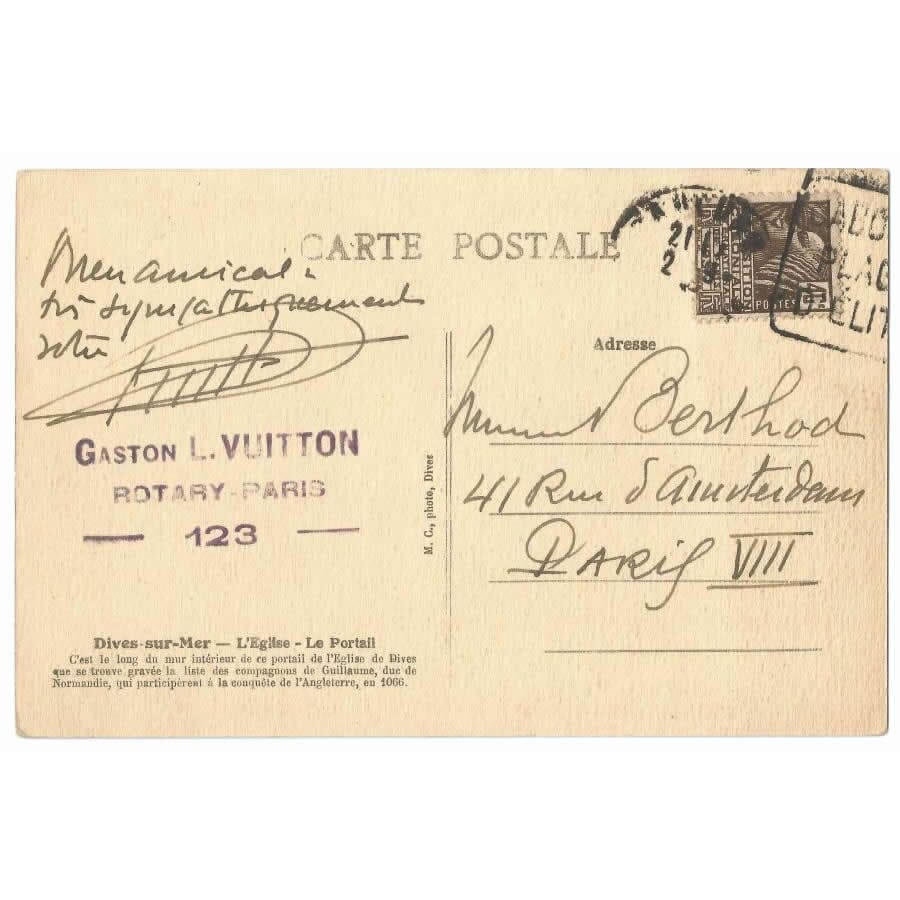 CARTE POSTALE
Bien amical &
très sympathiquement
votre
GASTON L. VUITTON
ROTARY-PARIS
— 123 —
Dives-sur-Mer — L'Eglise - Le Portail
C'est le long du mur intérieur de ce portail de l'Eglise de Dives
que se trouve gravée la liste des compagnons de Guillaume, duc de
Normandie, qui participèrent à la conquête de l'Angleterre, en 1066.
M. C., photo, Dives
21
2
POSTES
PLAG
D'ELIT
Adresse
Berthod
41 Rue d'Amsterdam
PARIS VIII